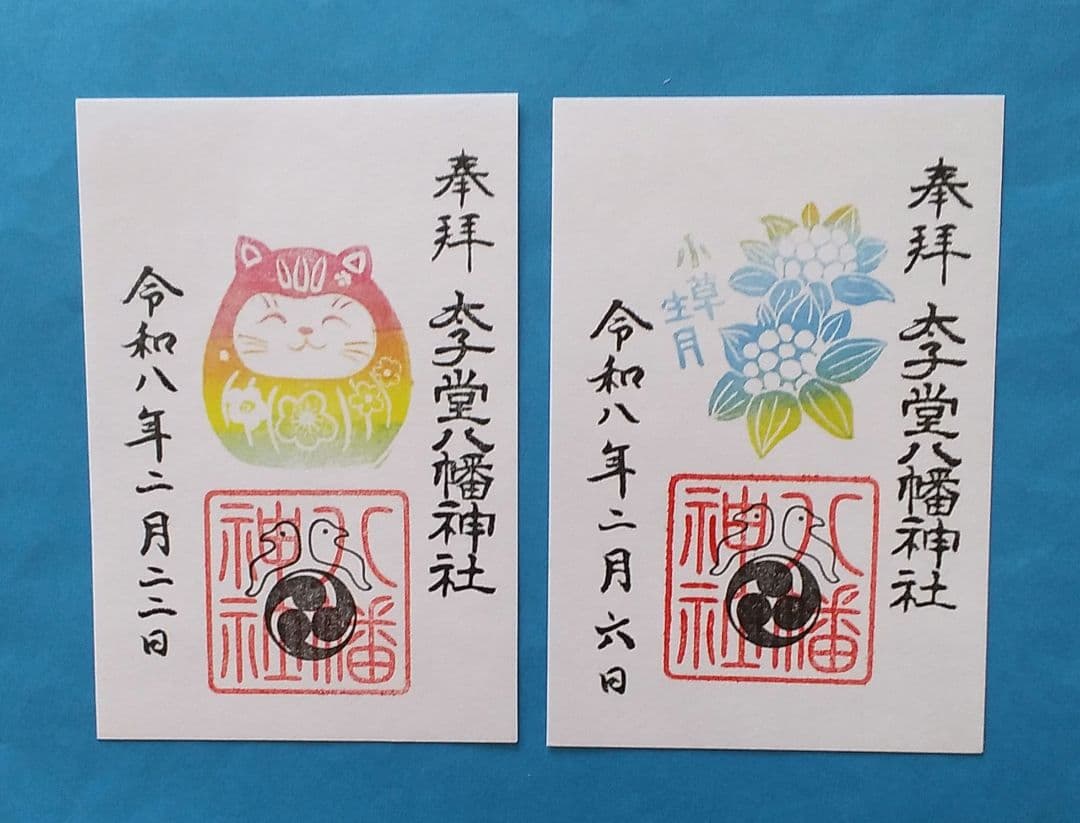 奉拝 太子堂八幡神社
令和八年二月二二日
八幡
神社
奉拝 太子堂八幡神社
小草
生月
令和八年二月六日
八幡
神社